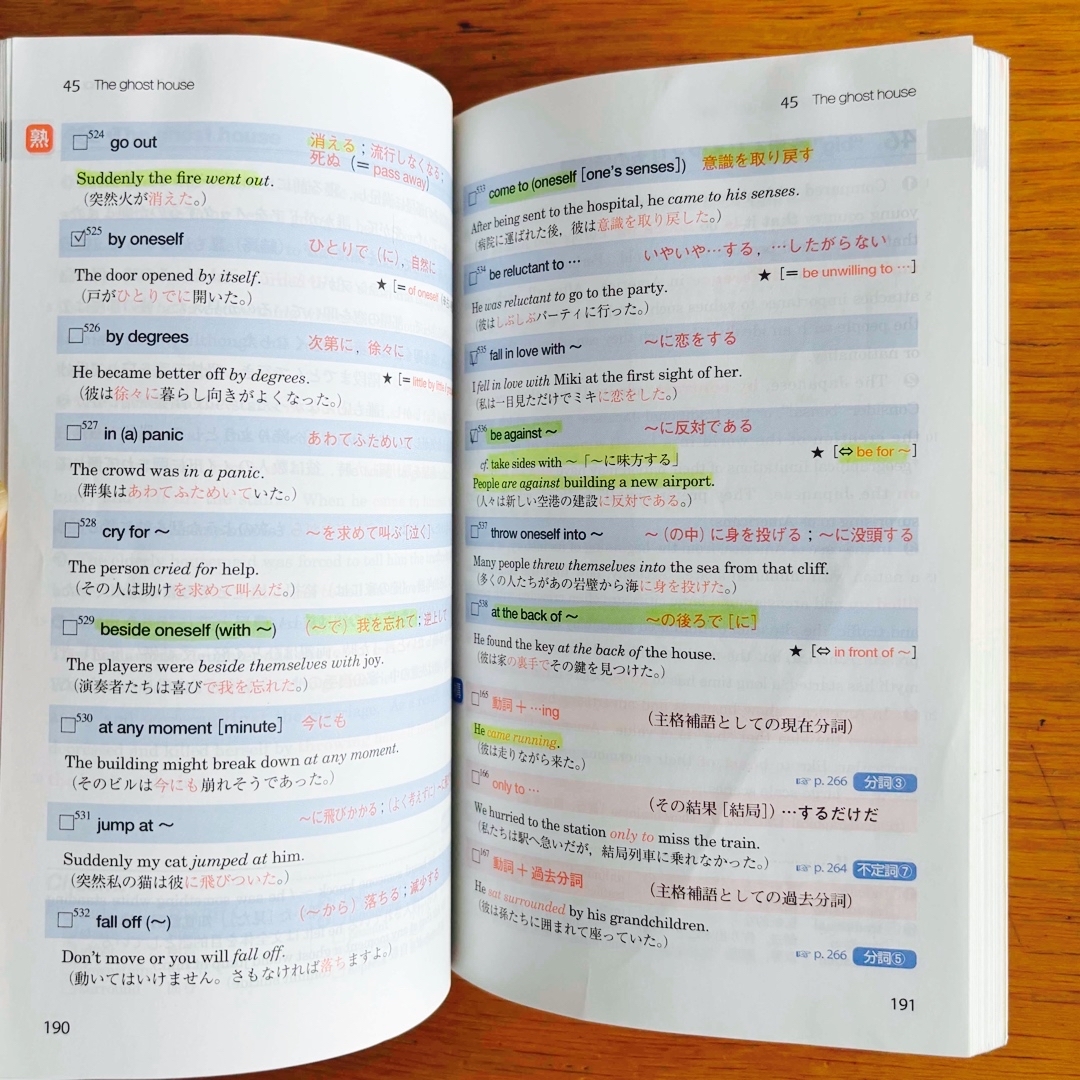 45 The ghost house
熟
524 go out 消える；流行しなくなる；
死ぬ（= pass away）
Suddenly the fire went out.
（突然火が消えた。）
525 by oneself ひとりで（に），自然に
The door opened by itself. ★ [= of oneself
（戸がひとりでに開いた。）
526 by degrees 次第に，徐々に
He became better off by degrees. ★ [= little by little
（彼は徐々に暮らし向きがよくなった。）
527 in (a) panic あわてふためいて
The crowd was in a panic.
（群集はあわてふためいていた。）
528 cry for ～ ～を求めて叫ぶ［泣く］
The person cried for help.
（その人は助けを求めて叫んだ。）
529 beside oneself (with ～) （～で）我を忘れて；逆上して
The players were beside themselves with joy.
（演奏者たちは喜びで我を忘れた。）
530 at any moment [minute] 今にも
The building might break down at any moment.
（そのビルは今にも崩れそうであった。）
531 jump at ～ ～に飛びかかる；（よく考えずに）
Suddenly my cat jumped at him.
（突然私の猫は彼に飛びついた。）
532 fall off (～) （～から）落ちる；減少する
Don't move or you will fall off.
（動いてはいけません。さもなければ落ちますよ。）
190
45 The ghost house
533 come to (oneself [one's senses]) 意識を取り戻す
After being sent to the hospital, he came to his senses.
（病院に運ばれた後，彼は意識を取り戻した。）
534 be reluctant to … いやいや…する，…したがらない
He was reluctant to go to the party. ★ [= be unwilling to …]
（彼はしぶしぶパーティに行った。）
535 fall in love with ～ ～に恋をする
I fell in love with Miki at the first sight of her.
（私は一目見ただけでミキに恋をした。）
536 be against ～ ～に反対である
cf. take sides with ～「～に味方する」 ★ [⇔ be for ～]
People are against building a new airport.
（人々は新しい空港の建設に反対である。）
537 throw oneself into ～ ～（の中）に身を投げる；～に没頭する
Many people threw themselves into the sea from that cliff.
（多くの人たちがあの岩壁から海に身を投げた。）
538 at the back of ～ ～の後ろで［に］
He found the key at the back of the house. ★ [⇔ in front of ～]
（彼は家の裏手でその鍵を見つけた。）
165 動詞＋…ing （主格補語としての現在分詞）
He came running.
（彼は走りながら来た。）
☞ p. 266 分詞③
166 only to … （その結果［結局］）…するだけだ
We hurried to the station only to miss the train.
（私たちは駅へ急いだが，結局列車に乗れなかった。）
☞ p. 264 不定詞⑦
167 動詞＋過去分詞 （主格補語としての過去分詞）
He sat surrounded by his grandchildren.
（彼は孫たちに囲まれて座っていた。）
☞ p. 266 分詞⑤
191